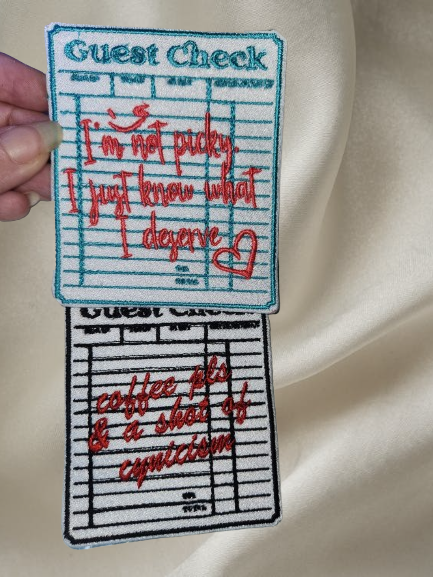 Guest Check
I'm not picky.
I just know what
I deserve
Guest Check
coffee pls
& a shot of
cynicism